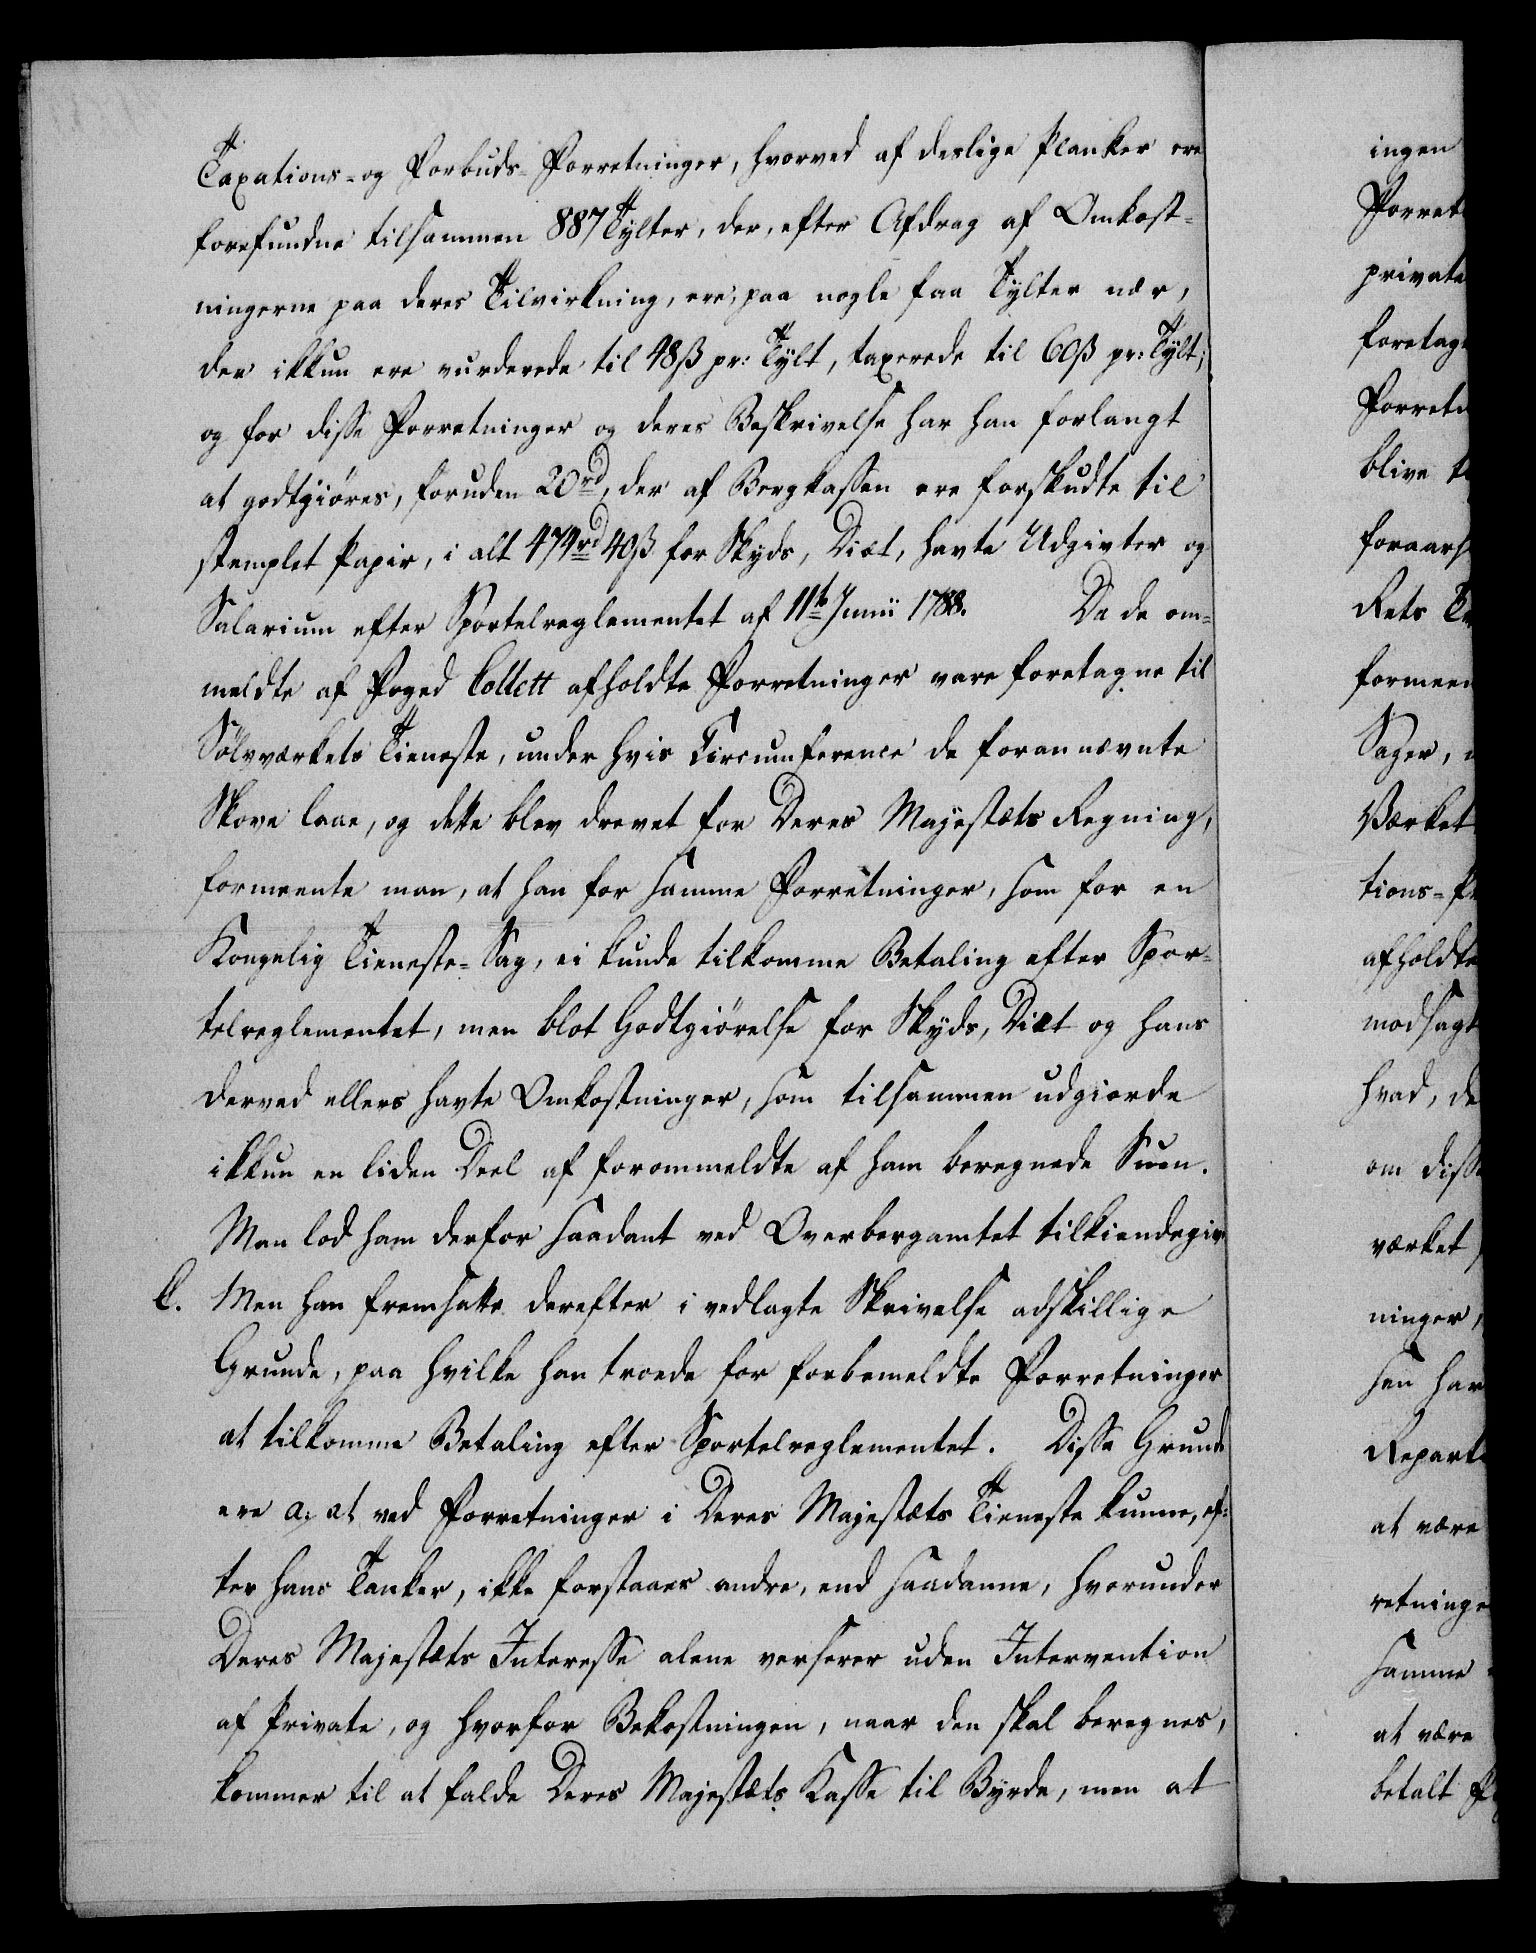 Taxations- og Forbuds-Forretninger, hvorved af deslige Planker ere
forefundne tilsammen 887 Tylter, der, efter Afdrag af Omkost-
ningerne paa deres Tilvirkning, ere, paa nogle faa Tylter nær,
der ikkun ere vurderede til 48ß pr: Tylt, taxerede til 60ß pr: Tylt;
og for disse Forretninger og deres Beskrivelse har han forlangt
at godtgiöres, foruden 20rd, der af Bergkassen ere forskudte til
stemplet Papir, i alt 474rd 40ß for Skyds, Diæt, havte Udgivter og
Salarium efter Sportelreglementet af 11te Junii 1788. Da de om-
meldte af Foged Collett afholdte Forretninger vare foretagne til
Sölvværkets Tieneste, under hvis Circumference de forannævnte
Skove laae, og dette blev drevet for Deres Majestæts Regning,
formeente man, at han for samme Forretninger, som for en
Kongelig Tieneste-Sag, ei kunde tilkomme Betaling efter Spor-
telreglementet, men blot Godtgiörelse for Skyds, Diæt og hans
derved ellers havte Omkostninger, som tilsammen udgiorde
ikkun en liden Deel af forommeldte af ham beregnede Sum.
Man lod ham derfor saadant ved Overbergamtet tilkiendegive
C. Men han fremsatte derefter i vedlagte Skrivelse adskillige
Grunde, paa hvilke han troede for forbemeldte Forretninger
at tilkomme Betaling efter Sportelreglementet. Disse Grunde
ere a, at ved Forretninger i Deres Majestæts Tieneste kunne, ef-
ter hans Tanker, ikke forstaaes andre, end saadanne, hvorunder
Deres Majestæts Interesse alene verserer uden Intervention
af Private, og hvorfor Bekostningen, naar den skal beregnes,
kommer til at falde Deres Majestæts Kasse til Byrde, men at
ingen
Forret
private
foretag
Forret
blive
foraars
Rets
formeen
Sager,
Værket
tions-
afholdte
modsagt
hvad, de
om disse
værket
ninger,
han har
Repart
at være
retninge
samme
at være
betalt